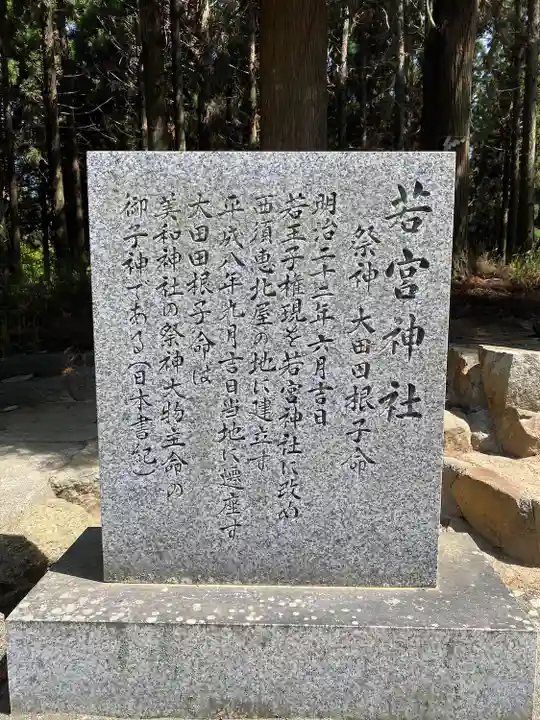 若宮神社
祭神 大田田根子命
明治二十二年六月吉日
若王子権現を若宮神社に改め
西須恵北屋の地に建立す
平成八年九月吉日当地に遷座す
大田田根子命は
美和神社の祭神大物主命の
御子神である(日本書紀)